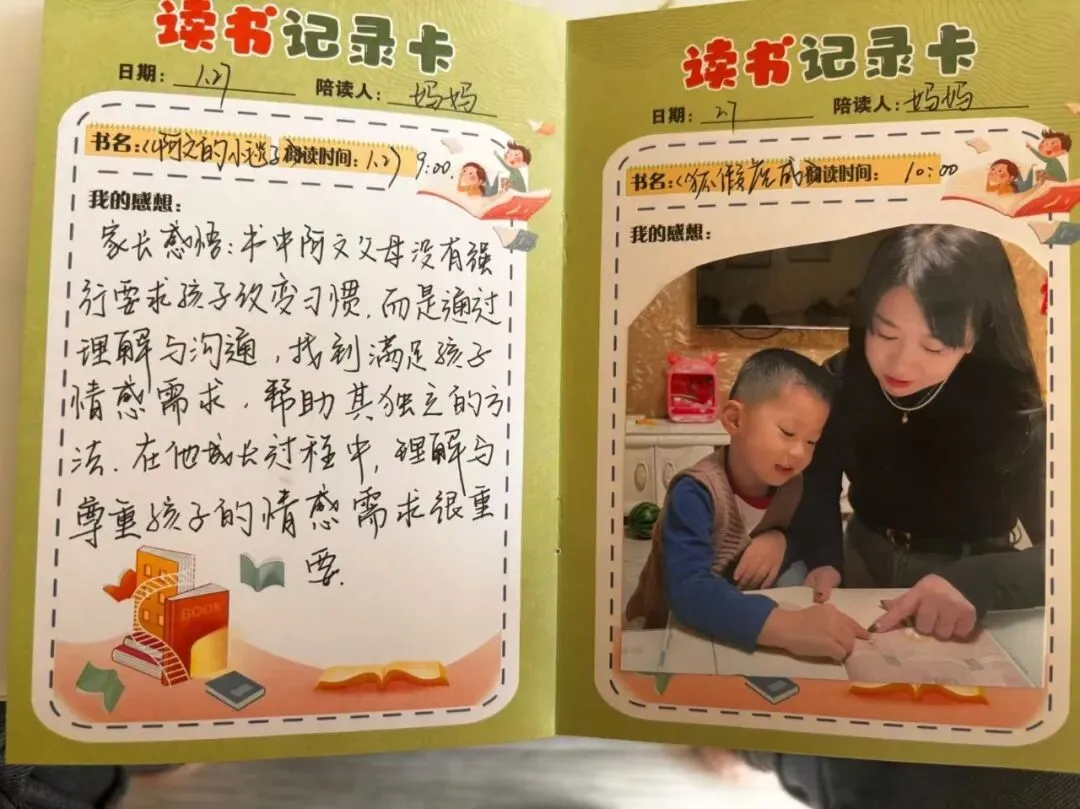 读书记录卡
日期：1.27 陪读人：妈妈
书名：《阿文的小毯子》阅读时间：1.27 9:00.
我的感想：
家长感悟：书中阿文父母没有强
行要求孩子改变习惯，而是通过
理解与沟通，找到满足孩子
情感需求，帮助其独立的方
法．在他成长过程中，理解与
尊重孩子的情感需求很重
要．
BOOK
读书记录卡
日期：27 陪读人：妈妈
书名：《狐假虎威 阅读时间：10:00
我的感想：